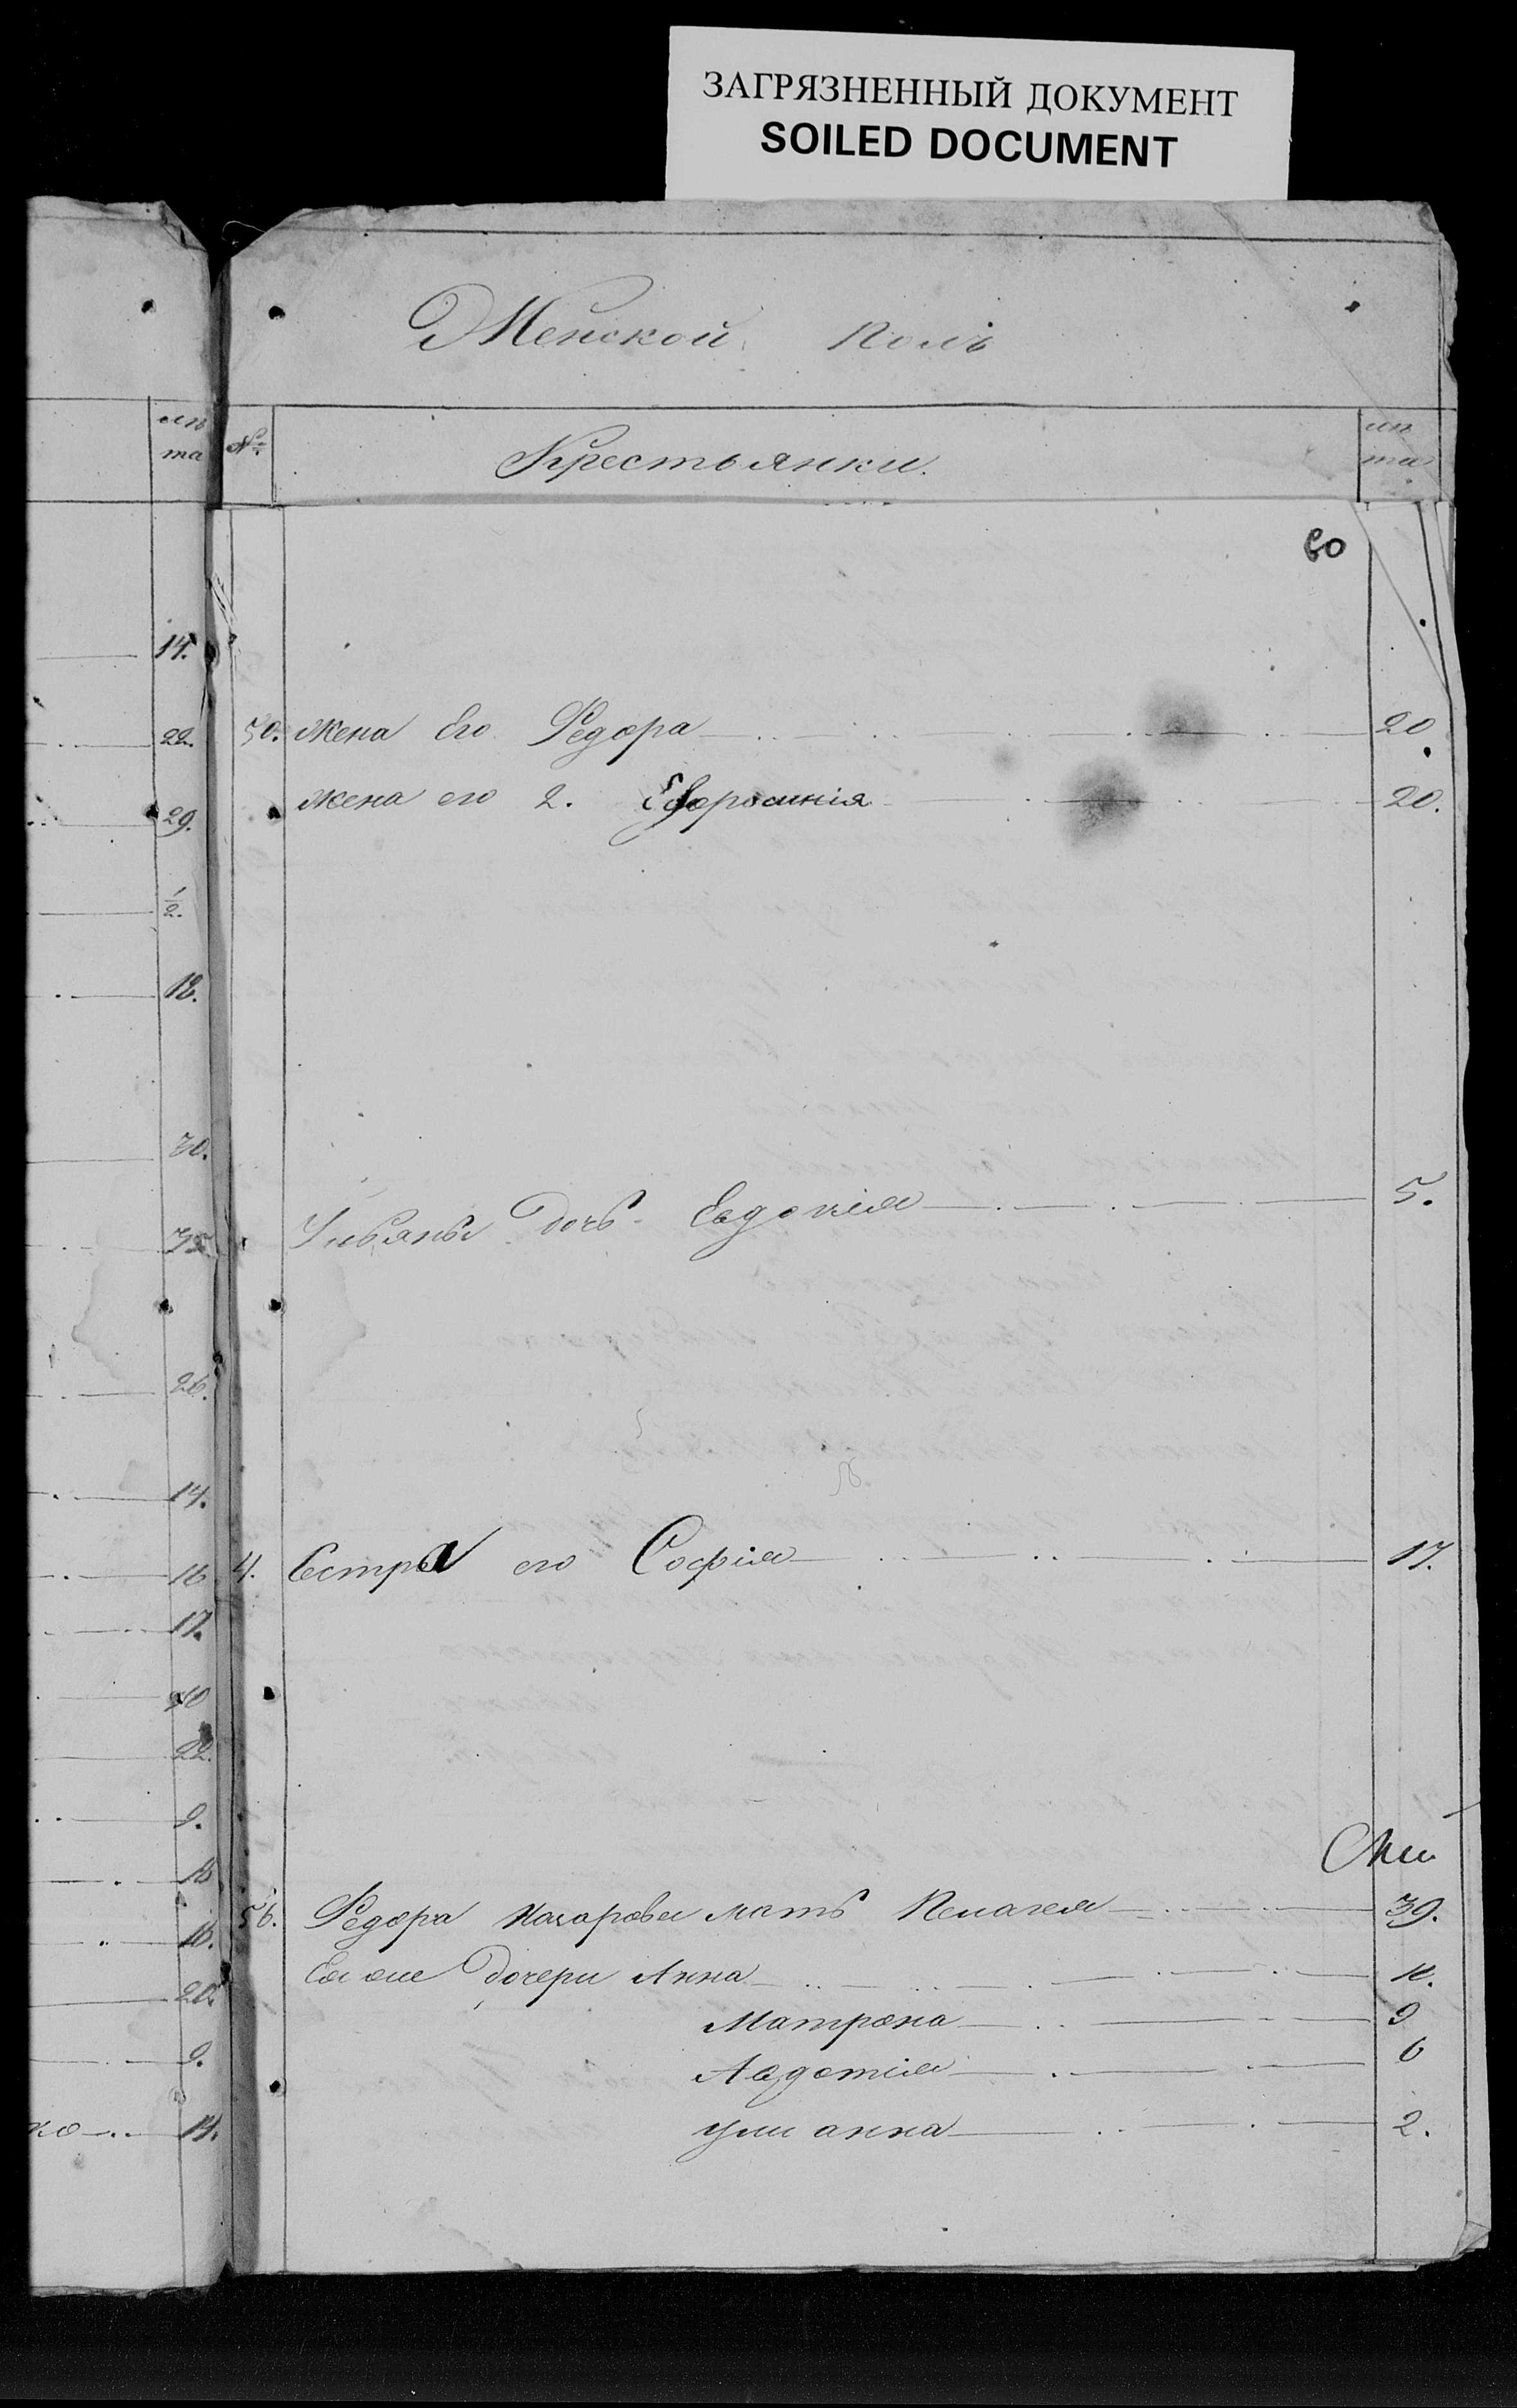 ЗАГРЯЗНЕННЫЙ ДОКУМЕНТ
SOILED DOCUMENT
Женской полъ
лѣ
та
№
Крестьянки.
лѣ
та
60
14.
22. 50. Жена Его Федора 20
29. жена его 2. Ефросинія 20.
1/2.
18.
30.
35 Ульяны дочь Евдокія 5.
26.
14.
16 4. Сестра его Софія 17.
17.
40
22.
9.
18
56. Федора мать Пелагея 39.
16.
Ея же дочери Анна 12.
20.
Матрона 9
9. Авдотія 6
ко 14. улианна 2.